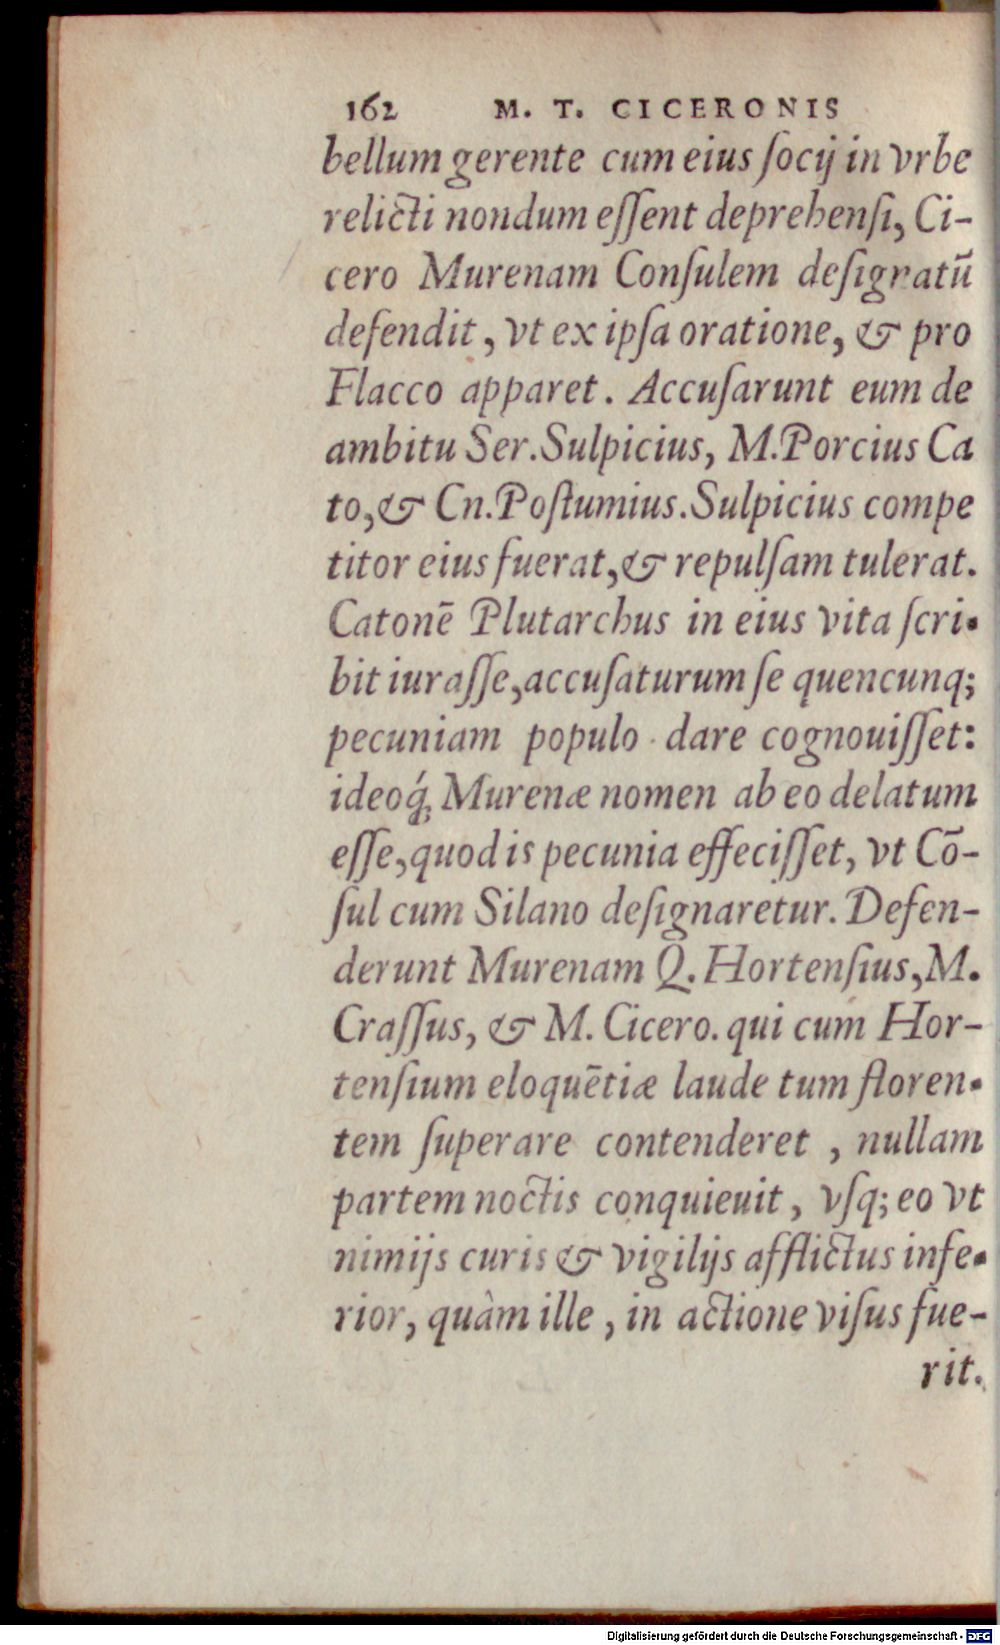 162 M. T. CICERONIS
bellum gerente cum eius ſocij in vrbe
relicti nondum eſſent deprehenſi, Ci-
cero Murenam Conſulem deſignatū
defendit, vt ex ipſa oratione, & pro
Flacco apparet. Accuſarunt eum de
ambitu Ser. Sulpicius, M. Porcius Ca
to, & Cn. Poſtumius. Sulpicius compe
titor eius fuerat, & repulſam tulerat.
Catonē Plutarchus in eius vita ſcri-
bit iuraſſe, accuſaturum ſe quencunq;
pecuniam populo dare cognouiſſet:
ideoq́; Murenæ nomen ab eo delatum
eſſe, quod is pecunia effeciſſet, vt Cō-
ſul cum Silano deſignaretur. Defen-
derunt Murenam Q. Hortenſius, M.
Craſſus, & M. Cicero. qui cum Hor-
tenſium eloquētiæ laude tum floren-
tem ſuperare contenderet, nullam
partem noctis conquieuit, vſq; eo vt
nimijs curis & vigilijs afflictus infe-
rior, quàm ille, in actione viſus fue-
rit.
Digitalisierung gefördert durch die Deutsche Forschungsgemeinschaft - DFG